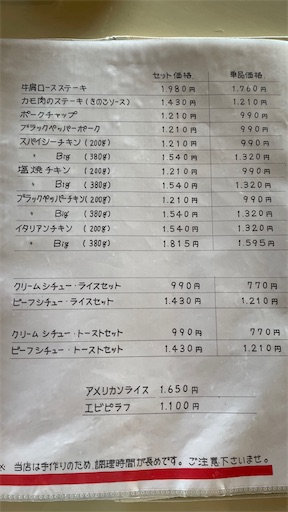 セット価格 単品価格
牛肩ロースステーキ 1.980円 1.760円
カモ肉のステーキ(きのこソース) 1.430円 1.210円
ポークチャップ 1.210円 990円
ブラックペッパーポーク 1.210円 990円
スパイシーチキン(200g) 1.210円 990円
〃 Big (380g) 1.540円 1.320円
塩焼チキン (200g) 1.210円 990円
〃 Big (380g) 1.540円 1.320円
ブラックペッパーチキン(200g) 1.210円 990円
〃 Big (380g) 1.540円 1.320円
イタリアンチキン (200g) 1.540円 1.320円
〃 Big (380g) 1.815円 1.595円
クリームシチュー・ライスセット 990円 770円
ビーフシチュー・ライスセット 1.430円 1.210円
クリームシチュー・トーストセット 990円 770円
ビーフシチュー・トーストセット 1.430円 1.210円
アメリカンライス 1.650円
エビピラフ 1.100円
※ 当店は手作りのため、調理時間が長めです。ご注意下さいませ。